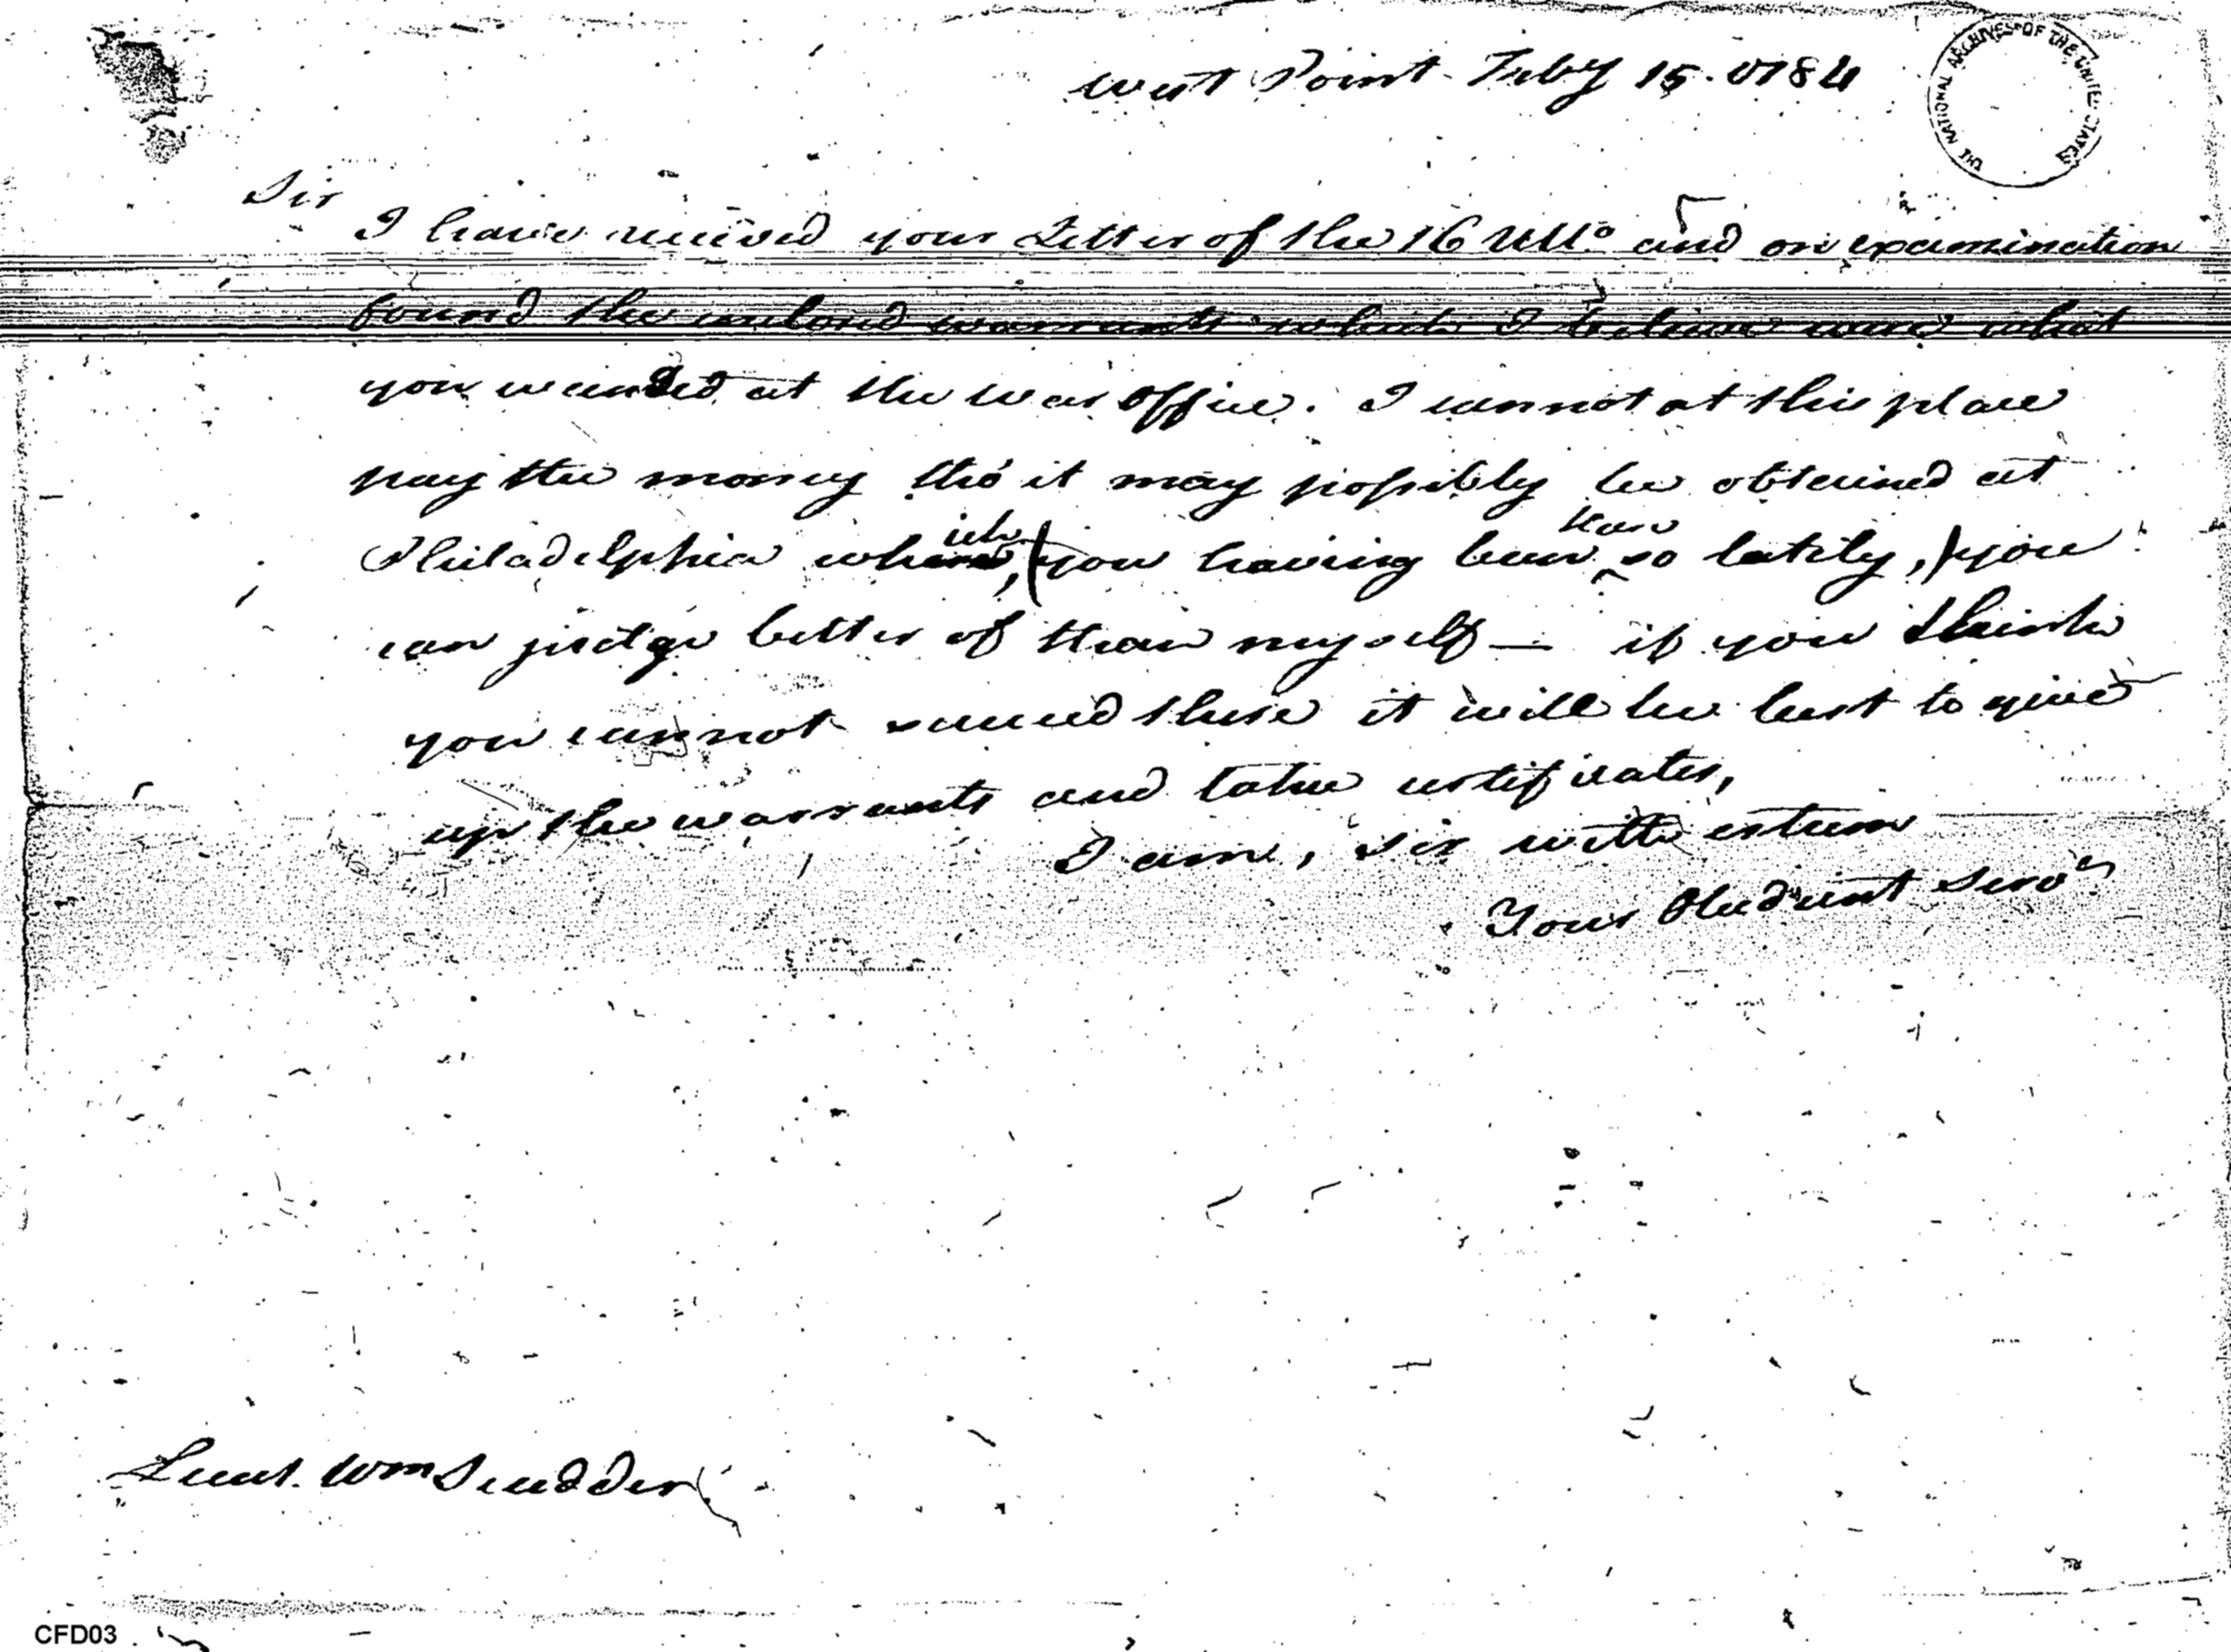 West Point Feby 15. 1784
THE NATIONAL ARCHIVES OF THE UNITED STATES
Sir
I have received your Letter of the 16 Ullo and on examination
found the enclosed warrants which I believe were what
you wanted at the war Office. I cannot at this place
pay the money tho' it may possibly be obtained at
Philadelphia which, (you having been there so lately,) you
can judge better of than myself — if you think
you cannot succeed there it will be best to give
up the warrants and take certificates,
I am, Sir with esteem
Your Obedient Servt
Lieut. Wm Scudder
CFD03